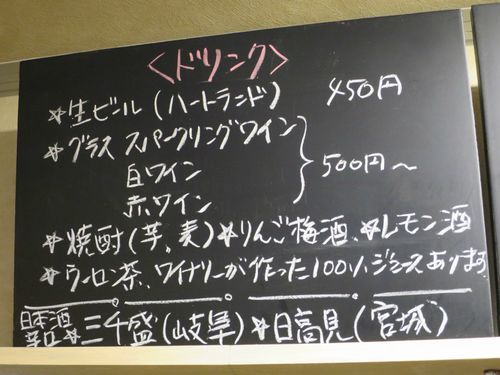 ＜ドリンク＞
*生ビール(ハートランド) 450円
*グラス スパークリングワイン
白ワイン
赤ワイン
500円〜
*焼酎(芋、麦)*りんご梅酒、*レモン酒
*ウーロン茶、ワイナリーが作った100%ジュースあります
日本酒
辛口*三千盛(岐阜)*日高見(宮城)